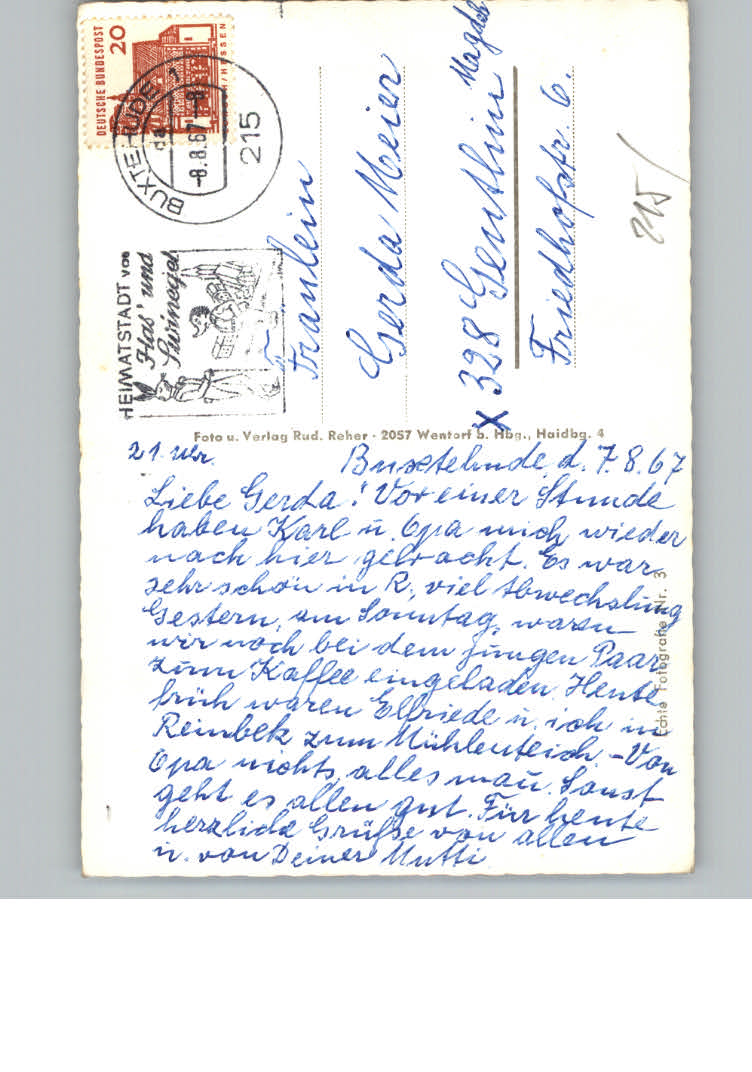 DEUTSCHE BUNDESPOST
20
BUXTEHUDE 1
da
-8.8.67-8
215
HEIMATSTADT von
Has' und
Swinegel
Fräulein
Gerda Meier
X 328 Genthin Magdeb
Friedhofstr. 6.
215/
Foto u. Verlag Rud. Reher · 2057 Wentorf b. Hbg., Haidbg. 4
Echte Fotografie Nr. 3
21. Uhr. Buxtehude, d. 7.8.67
Liebe Gerda! Vor einer Stunde
haben Karl u. Opa mich wieder
nach hier gebracht. Es war
sehr schön in R., viel Abwechslung
Gestern, am Sonntag, waren
wir noch bei dem jungen Paar
zum Kaffee eingeladen. Heute
früh waren Elfriede u. ich in
Reinbek zum Mühlenteich. – Von
Opa nichts, alles mau. Sonst
geht es allen gut. Für heute
herzliche Grüße von allen
u. von Deiner Mutti